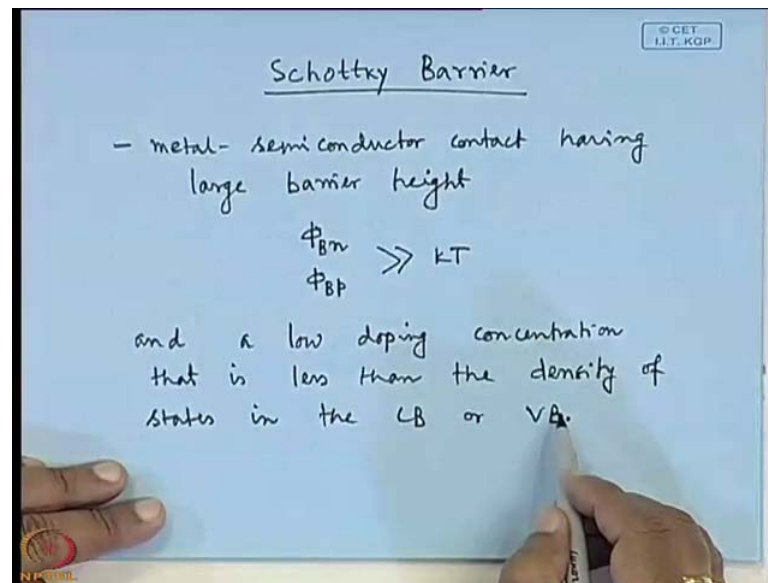 © CET
I.I.T. KGP
Schottky Barrier
- metal-semiconductor contact having
large barrier height
ΦBn
ΦBp >> KT
and a low doping concentration
that is less than the density of
states in the CB or VB.
NPTEL